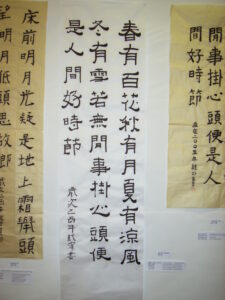 閒事掛心頭便是人
間好時節
春有百花秋有月夏有涼風
冬有雪若無閒事掛心頭便
是人間好時節
床前明月光疑是地上霜舉頭
望明月低頭思故鄉